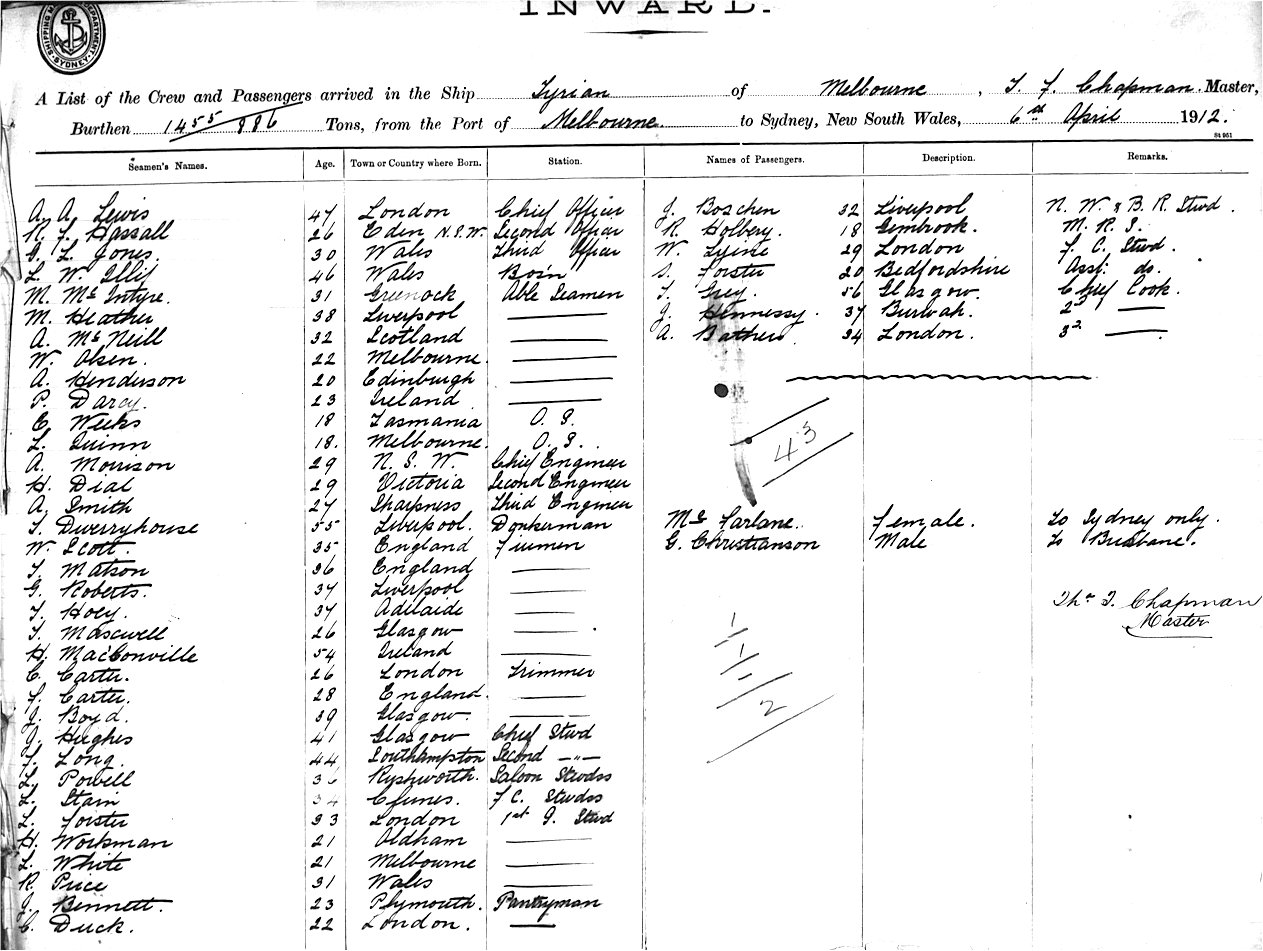 SHIPPING M DEPARTMENT. SYDNEY
INWARD.
A List of the Crew and Passengers arrived in the Ship Tyrian of Melbourne, T. F. Chapman. Master,
Burthen 1455/886 Tons, from the Port of Melbourne to Sydney, New South Wales, 6th April 1912.
St 961
Seamen's Names. Age. Town or Country where Born. Station. Names of Passengers. Description. Remarks.
A. A. Lewis 47 London Chief Officer J. Boschen 32 Liverpool N. W. & B. R. Stwd.
R. J. Hassall 26 Eden N.S.W. Second Officer R. Holbery. 18 Gembrook. M. R. S.
G. L. Jones. 30 Wales Third Officer W. 29 London F. C. Stwd.
L. W. 46 Wales Bos'n S. Forster 20 Bedfordshire Asst. do.
M. McIntyre. 31 Greenock Able Seamen T. Grey. 56 Glasgow. Chief Cook.
M. Heather 38 Liverpool —— J. Hennessy. 37 2nd ——
A. McNeill 32 Scotland —— A. 34 London. 3rd ——.
W. Olsen. 22 Melbourne. ——
A. Henderson 20 Edinburgh ——
P. Darcy. 23 Ireland ——
E. Weeks 18 Tasmania O. S.
L. Quinn 18. Melbourne. O. S.
43
A. Morrison 29 N. S. W. Chief Engineer
H. Dial 29 Victoria Second Engineer
A. Smith 27 Sharpness Third Engineer
T. Dwerryhouse 55 Liverpool. Donkeyman McFarlane. Female. To Sydney only.
W. Scott. 35 England Firemen G. Christianson Male To Brisbane.
T. Matson 36 England ——
G. Roberts. 37 Liverpool —— Thos F. Chapman
T. Hoey. 37 Adelaide —— Master
T. Maxwell 26 Glasgow ——
H. MacConville 54 Ireland ——
C. Carter. 26 London Trimmer
F. Carter. 28 England. ——
J. Boyd. 39 Glasgow. —— 2
J. Hughes 41 Glasgow Chief Stwd
Long. 44 Southampton Second —"—
Powell 36 Saloon Stwdss
Stain 34 F C. Stwdss
Forster 33 London 1st S. Stwd
H. Workman 21 Oldham ——
White 21 Melbourne ——
R. Price 31 Wales ——
J. Bennett. 23 Plymouth. Pantryman
C. Duck. 22 London. ——